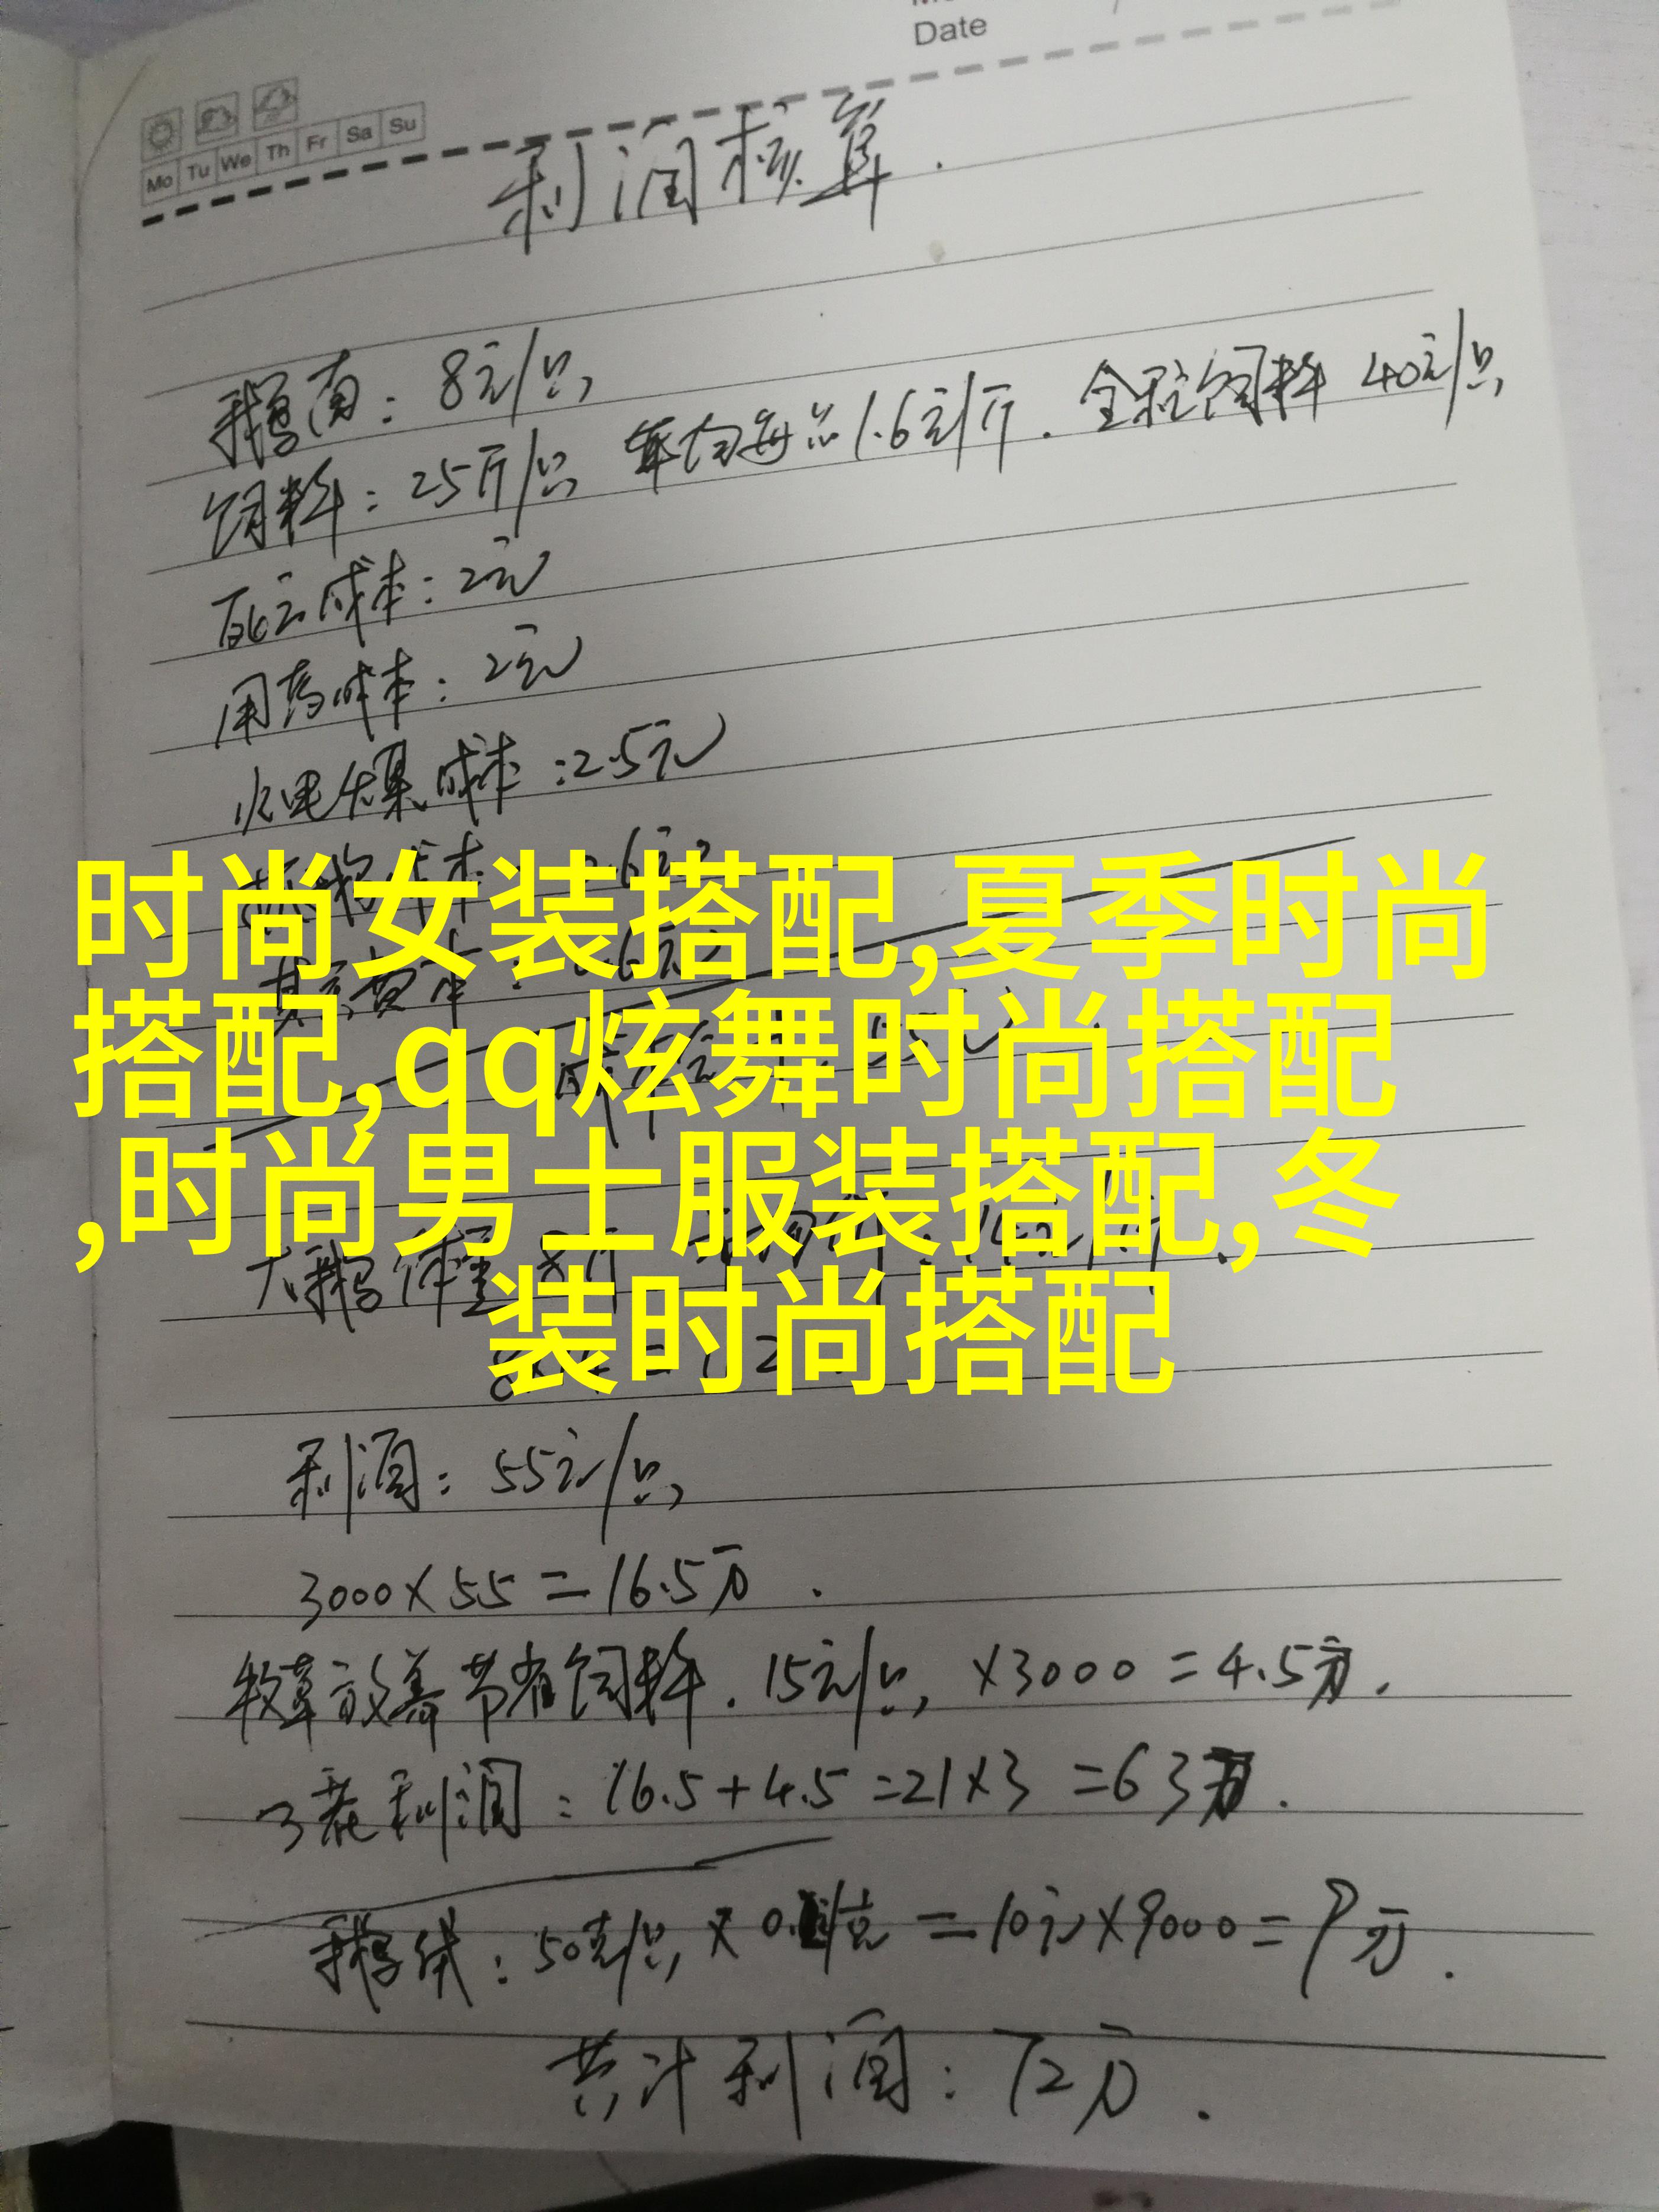 Date
Mo Tu We Th Fr Sa Su
利润核算.
鹅苗: 8元/只
饲料: 25斤/只 年均每只1.6元/斤. 全程饲料 40元/只
死亡成本: 2元
用药成本: 2元
水电煤成本: 2.5元
时尚女装搭配,夏季时尚
搭配,qq炫舞时尚搭配
,时尚男士服装搭配,冬
装时尚搭配
大鹅体重
利润: 55元/只
3000×55=16.5万.
牧草放养节省饲料. 15元/只, ×3000=4.5万.
3茬利润: 16.5+4.5=21×3=63万.
鹅绒: 50克/只 × =10元×9000=9万.
共计利润: 72万.